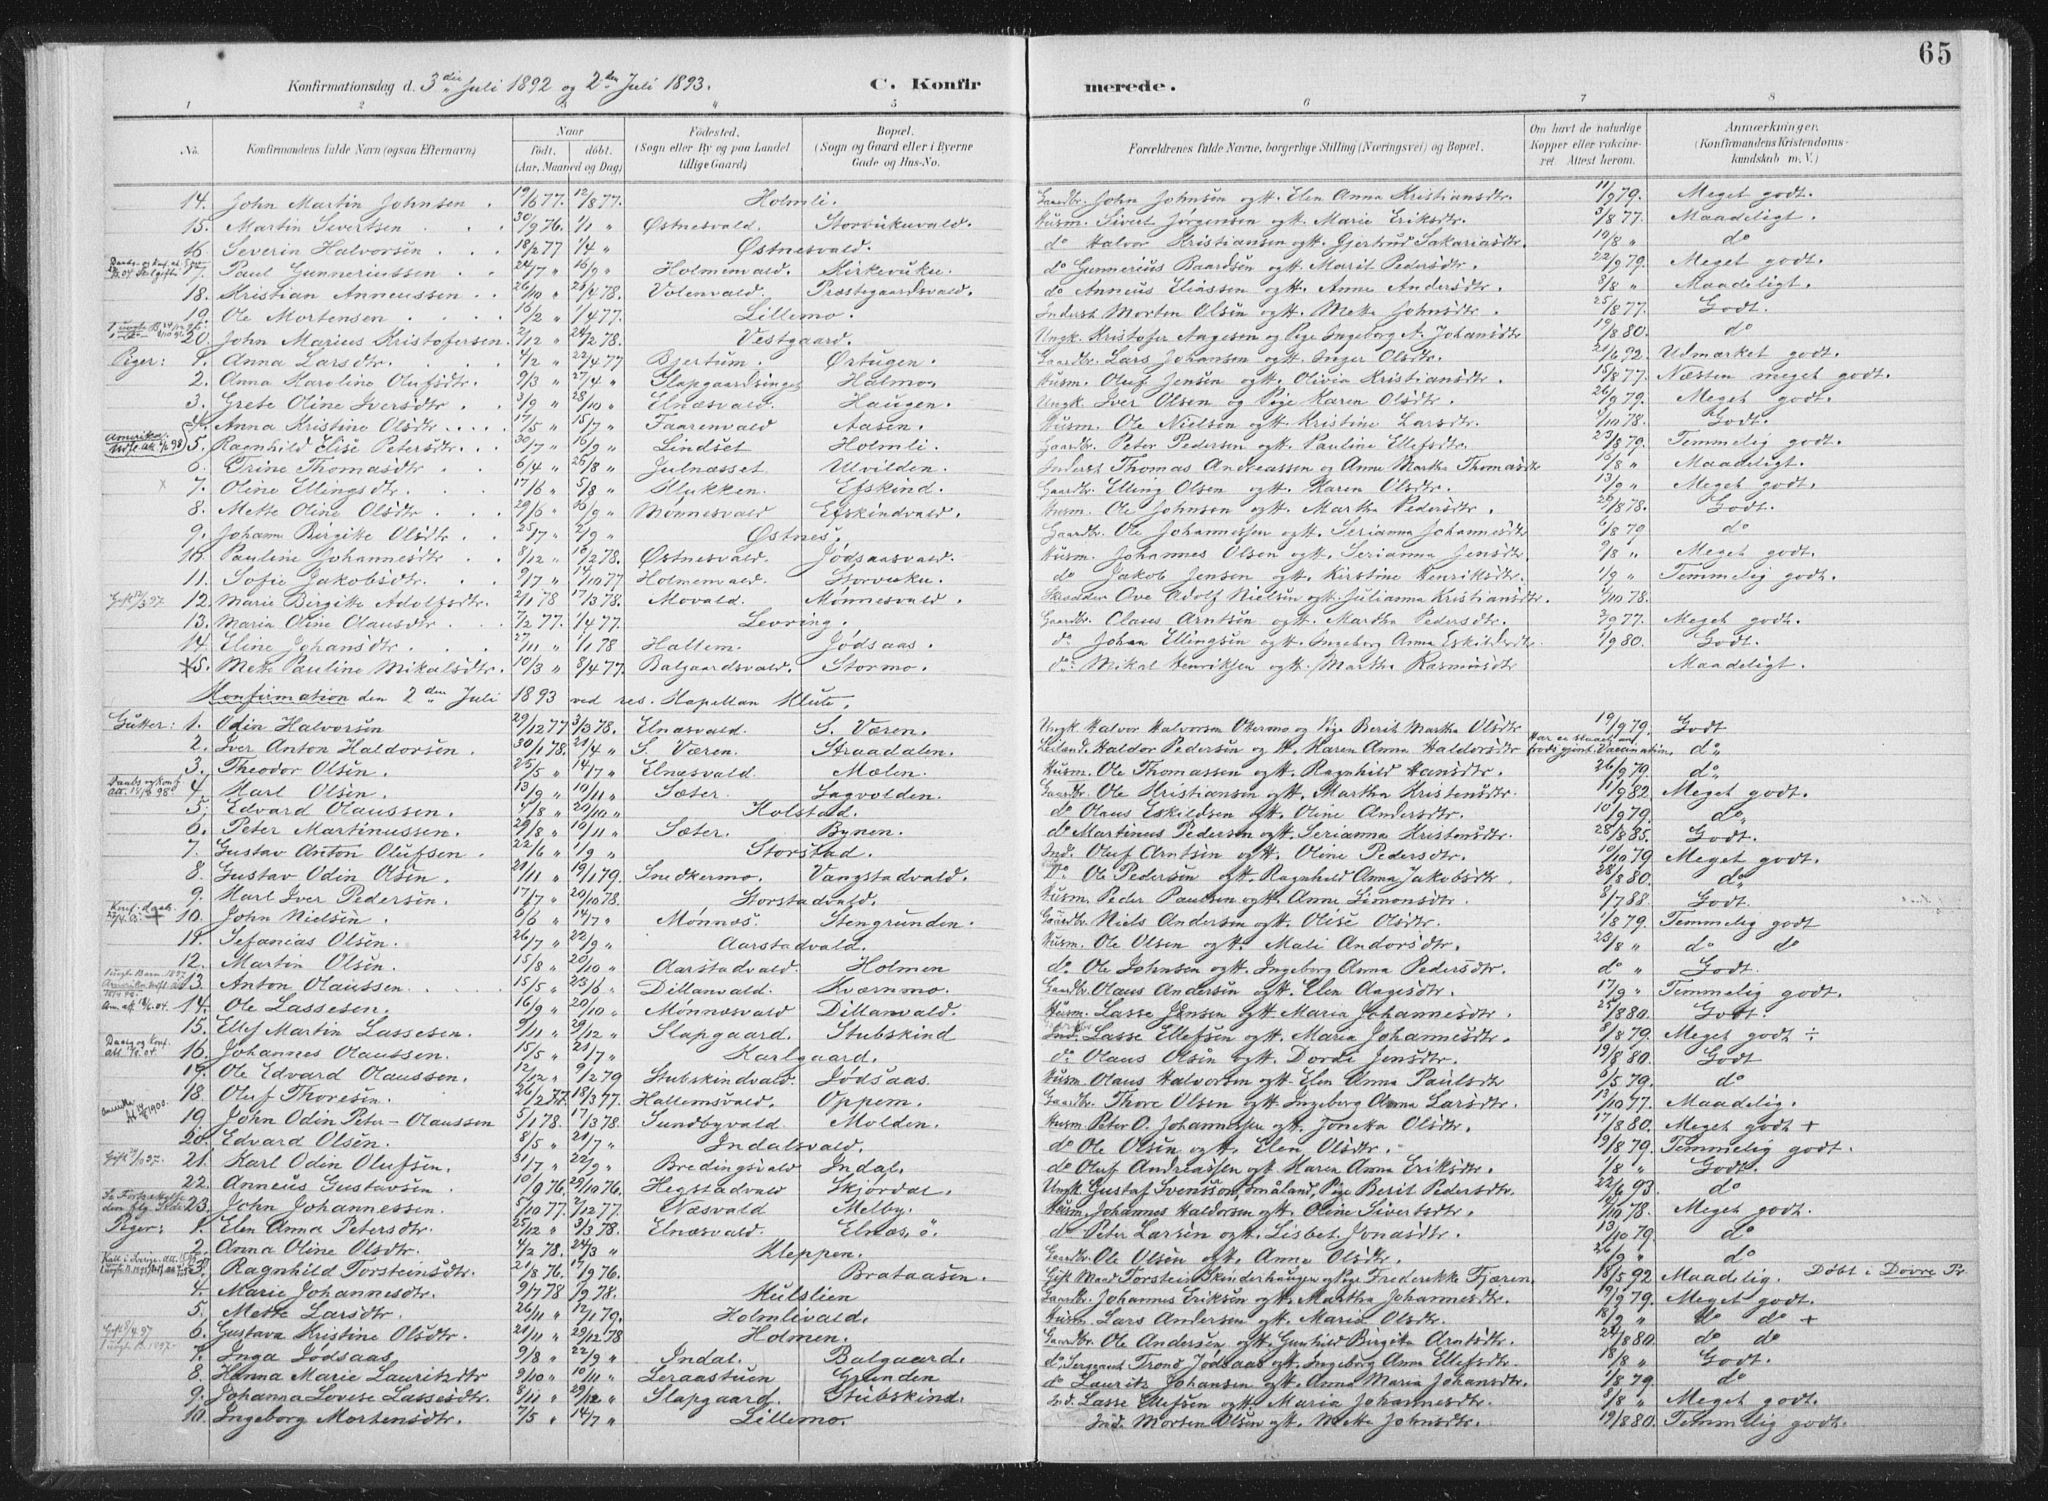 65
Konfirmationsdag d. 3die Juli 1892 og 2den Juli 1893. C. Konfirmerede.
1 2 3 4 5 6 7 8
No. Konfirmandens fulde Navn (ogsaa Efternavn) Naar født. døbt. (Aar, Maaned og Dag) Fødested. (Sogn eller By og paa Landet tillige Gaard) Bopæl. (Sogn og Gaard eller i Byerne Gade og Hus-No. Forældrenes fulde Navne, borgerlige Stilling (Næringsvei) og Bopæl. Om havt de naturlige Kopper eller vakcineret Attest herom. Anmærkninger. (Konfirmandens Kristendomskundskab m. V.)
14. John Martin Johnsen. 19/6 77. 12/8 77. Holmli. Gaardbr. John Johnsen og H. Elen Anna Kristiansdtr. 11/9 79. Meget godt.
15. Martin Sivertsen 30/9 76. 1/1 " Østnesvald. Storvukuvald. Husm. Sivert Jørgensen og H. Marie Eriksdtr. 3/8 77. Maadeligt.
16. Severin Halvorsen 18/2 77 1/4 " Østnesvald. do Halvor Kristiansen og H. Gjertrud Sakariasdtr. 10/8 " do
17. Paul Gunneriussen 24/7 " 16/9 " Holmenvald. Kirkevuku. do Gunnerius Baardsen og H. Marit Pedersdtr. 22/9 79. Meget godt.
18. Kristian Anneussen 26/10 " 28/4 78. Volenvald. Præstegaardsvald. do Anneus Eliassen og H. Anne Andersdtr. 8/8 " Maadeligt.
19. Ole Mortensen 16/2 " 1/4 77. Lillemo. Inderst Morten Olsen og H. Mette Johnsdtr. 25/8 77. Godt.
20. John Marius Kristofersen. 2/12 " 24/2 78. Vestgaard. Ungk. Kristofer Aagesen og Pige Ingeborg A. Johansdtr. 19/8 80. do
Piger: 1. Anna Larsdtr. 4/2 " 22/4 77 Bjertum. Ørtugen. Gaardbr. Lars Johansen og H. Inger Olsdtr. 21/6 92. Udmærket godt.
2. Anna Karoline Olufsdtr. 9/3 " 27/4 " Slapgaardsinget Halmo. Husm. Oluf Jensen og H. Olivia Kristiansdtr. 15/8 77. Næsten meget godt.
3. Grete Oline Iversdtr. 3/9 " 28/10 " Elnæsvald. Haugen. Ungk. Iver Olsen og Pige Karen Olsdtr. 26/9 79. Meget godt.
4. Anna Kristine Olsdtr. 17/5 " 15/7 " Faarenvald Aasen. Husm. Ole Nielsen og H. Kristine Larsdtr. 9/10 78. Godt.
5. Ragnhild Elise Petersdtr. 30/7 " 16/9 " Lindset Holmli. Gaardbr. Peter Pedersen og H. Pauline Ellefsdtr. 23/8 79. Temmelig godt.
6. Trine Thomasdtr. 6/4 " 26/8 " Julnæsset Ulvilden. Inderst Thomas Andreassen og Anne Martha Thomasdtr 16/8 " Maadeligt.
7. Oline Ellingsdtr. 17/6 " 5/8 " Klukken. Efskind. Gaardbr. Elling Olsen og H. Karen Olsdtr. 13/9 " Meget godt.
8. Mette Oline Olsdtr. 29/6 " 30/9 " Mønnesvald Efskindvald. Husm. Ole Johnsen og H. Martha Pedersdtr. 29/8 78. Godt.
9. Johanne Birgitte Olsdtr. 25/7 " 2/9 " Østnes. Gaardbr. Ole Johannessen og H. Serianna Johannesdtr 6/8 79 do
10. Pauline Johannesdtr 8/12 " 16/2 78. Østnesvald. Jødsaasvald. Husm. Johannes Olsen og H. Serianna Jensdtr. 9/8 " Meget godt.
11. Sofie Jakobsdtr. 9/7 " 14/10 77 Holmenvald. Storvuku. do Jakob Jensen og H. Kirstine Henriksdtr. 1/9 " Temmelig godt.
12. Marie Birgitte Adolfsdtr. 2/1 78 17/3 78. Movald. Mønnesvald. Skrædder Ove Adolf Nielsen og H. Julianna Kristiansdtr. 4/10 78.
13. Maria Oline Olausdtr 7/2 77. 1/4 77. Levring. Gaardbr. Claus Arntsen og H. Martha Pedersdtr. 3/9 77. Meget godt.
14. Eline Johansdtr. 27/11 " 1/1 78 Hallem. Jødsaas. do Johan Ellingsen og H. Ingeborg Anna Eskildsdtr. 1/9 80. Godt.
15. Mette Pauline Mikalsdtr. 10/3 " 8/4 77. Balgaardsvald. Stormo. do. Mikal Henriksen og H. Martha Rasmusdtr Maadeligt.
Konfirmation den 2den Juli 1893 ved res. Kapellan Klute.
Gutter: 1. Odin Halvorsen 29/12 77 3/3 78. Elnæsvald. S. Væren. Ungk. Halvor Halvorsen Økermo og Pige Berit Martha Olsdtr 19/9 79. Godt
2. Iver Anton Haldorsen. 30/1 78. 21/4 " S. Væren. Straadalen. Leiland. Haldor Pedersen og H. Karen Anna Haldorsdtr do
3. Theodor Olsen. 25/5 " 14/7 " Elnæsvald. Mælen. Husm. Ole Thomassen og H. Ragnhild Hansdtr. 26/9 79. do
4. Karl Olsen. 13/9 " 10/11 " Sæter. Sagvolden. Gaardbr. Ole Kristiansen og H. Martha Kristensdtr. 11/9 82. Meget godt.
5. Edvard Olaussen. 5/8 " 20/10 " Holstad. do Olaus Eskildsen og H. Oline Andersdtr. 10/9 79. do
6. Peter Martinussen. 29/8 " 10/11 " Sæter. Bynen. do Martinus Pedersen og H. Serianna Kristensdtr. 28/8 85. Godt.
7. Gustav Anton Olufsen. 22/6 " 1/9 " Storstad. Ind. Oluf Arntsen og H. Oline Pedersdtr. 10/10 79. Meget godt.
8. Gustav Odin Olsen. 21/11 " 19/1 79. Snedkermo. Vangstadvald. Do. Ole Pedersen og H. Ragnhild Anna Jakobsdtr. 28/8 80. do
9. Karl Iver Pedersen. 17/7 " 20/10 78. Storstadvald. Husm. Peder Paulsen og H. Anne Simonsdtr. 8/7 88. Godt.
10. John Nielsen. 6/6 " 14/7 " Mønnæs. Stengrunden. Gaardbr. Niels Andersen og H. Olise Olsdtr. 1/8 79. Temmelig godt
11. Sefanias Olsen. 26/7 " 22/9 " Aarstadvald. Husm. Ole Olsen og H. Mali Andorsdtr. 23/8 " do do
12. Martin Olsen. 15/8 " 20/10 " Aarstadvald. Holmen do. Ole Johnsen og H. Ingeborg Anna Pedersdtr. do " Godt.
13. Anton Olaussen. 15/5 " 23/6 " Dillanvald. Kværnmo. Gaardbr. Olaus Andersen og H. Elen Aagesdtr. 17/9 " Temmelig godt.
14. Ole Lassesen. 16/9 " 20/10 " Mønnæsvald Dillanvald. Husm. Lasse Jensen og H. Maria Johannesdtr. 25/8 80. Godt.
15. Ellef Martin Lassesen. 9/11 " 29/12 " Slapgaard. Stubskind Ind. Lasse Ellefsen og H. Maria Johannesdtr. 8/8 79. Meget godt ÷
16. Johannes Olaussen. 15/5 " 21/7 " Karlgaard. do. Olaus Olsen og H. Dordi Jensdtr. 19/8 80. Godt
17. Ole Edvard Olaussen. 12/12 " 9/2 79 Stubskindvald. Jødsaas. Husm. Olaus Halvorsen og H. Elen Anna Paulsdtr 6/5 79. do
18. Oluf Thoresen. 26/2 77. 18/3 77. Hallemsvald. Oppem. Gaardbr. Thore Olsen og H. Ingeborg Anna Larsdtr. 13/10 77. Maadelig.
19. John Odin Peter-Olaussen 5/1 78. 17/3 78. Sundbyvald. Molden. Husm. Peter O. Johannessen og H. Joneka Olsdtr. 17/8 80. Meget godt +
20. Edvard Olsen. 8/5 " 21/7 " Indalsvald. do Ole Olsen og H. Elen Olsdtr. 19/8 79. Temmelig godt.
21. Karl Odin Olufsen. 31/7 " 22/9 " Bredingsvald Indal. do Oluf Andreassen og H. Karen Anna Eriksdtr. 1/8 " Godt.
22. Anneus Gustavsen. 10/9 76. 29/10 76. Hegstadvald Skjørdal. Ungk. Gustaf Svensson, Småland, Pige Berit Pedersdtr. 22/6 93. do
23. John Johannessen. 5/10 77. 2/12 77. Næsvald Melby. Husm. Johannes Haldorsen og H. Oline Sivertsdtr. 16/10 78. Meget godt.
Piger: 1. Elen Anna Petersdtr. 25/12 " 3/3 78. Elnæsvald. Elnæs ö. do. Peter Larsen og H. Lisbet Jonasdtr. 13/10 79. do
2. Anna Oline Olsdtr. 4/2 78. 24/3 " Kleppen. Gaardbr. Ole Olsen og H. Anna Olsdtr. 26/9 " do
3. Ragnhild Torsteinsdtr. 21/8 76. 17/9 76. Brataasen. Gift Mand Torstein Skinderhaugen og Pige Frederikke Fjæren. 18/5 92. Maadelig. Døbt i Dovre Pr
4. Marie Johannesdtr. 9/7 78 7/9 78. Kulslien Gaardbr. Johannes Eriksen og H. Martha Johannesdtr. 19/9 79. Meget godt.
5. Mette Larsdtr. 26/11 " 12/1 79. Holmlivald. Husm. Lars Andersen og H. Maria Olsdtr. 18/9 " do do +
6. Gustava Kristine Olsdtr. 21/11 " 29/12 78 Holmen. Gaardbr. Ole Andersen og H. Gunhild Birgitta Arntsdtr. 24/8 80. do do
7. Inga Jødsaas 9/8 " 22/9 " Indal. Balgaard. do. Sergeant Trond Jødsaas og H. Ingeborg Anna Ellefsdtr. 18/8 " Godt.
8. Hanna Marie Lauritzdtr. 9/10 " 10/11 " Leraastuen Grunden do Lauritz Johansen og H. Anna Maria Johansdtr. 1/8 79. do
9. Johanna Lovise Lassesdtr. 8/11 " 29/12 " Slapgaard. Stubskind. Ind. Lasse Ellefsen og H. Maria Johannesdtr. 8/8 " Meget godt.
10. Ingeborg Mortensdtr. 7/5 " 14/7 " Lillemo. Ind. Morten Olsen og H. Mette Johnsdtr. 19/8 80. Temmelig godt.